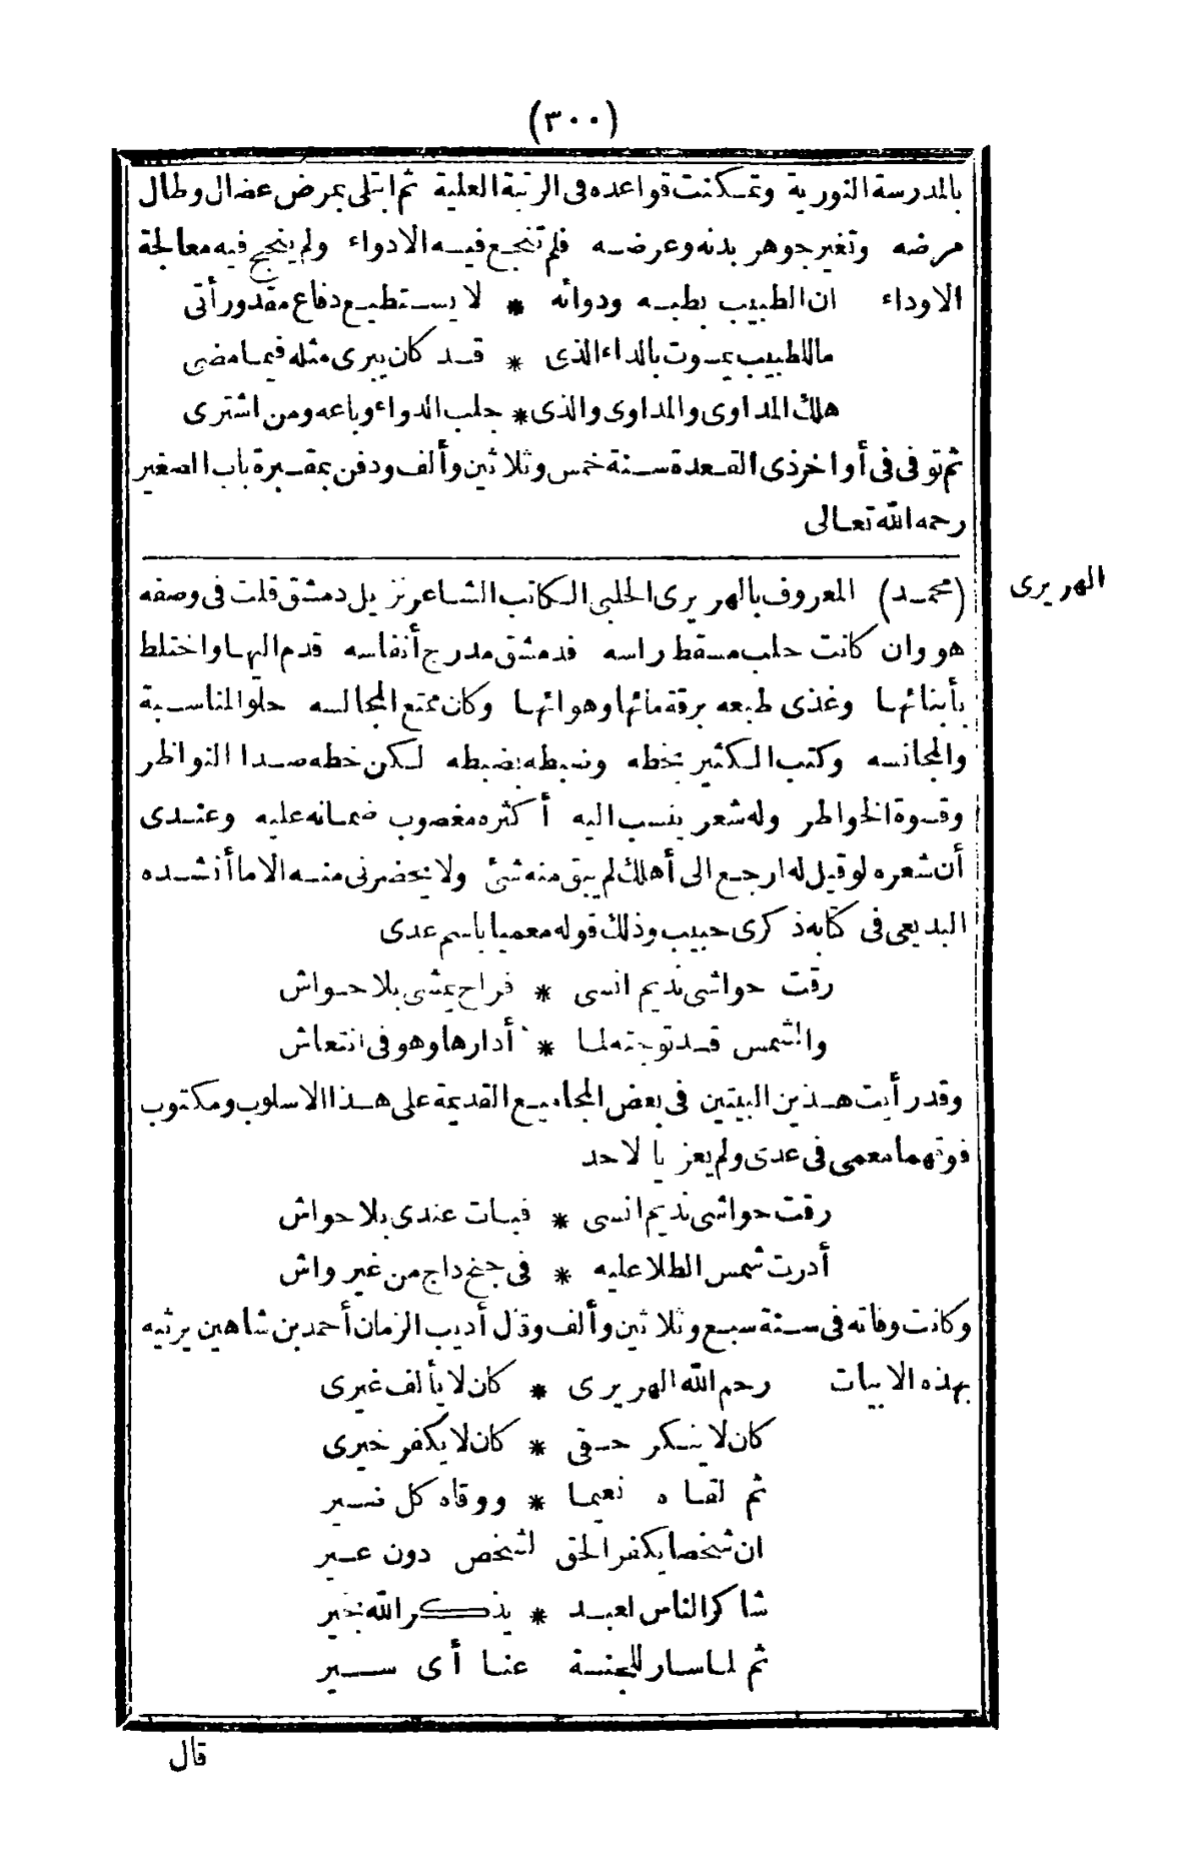 (٣٠٠)
بالمدرسة النورية وتمكنت قواعده فى الرتبة العلية ثم ابتلى بمرض عضال وطال
مرضه وتغير جوهر بدنه وعرضه فلم تنجع فيه الادواء ولم ينجح فيه معالجة
الاوداء ان الطبيب بطبه ودوائه * لا يستطيع دفاع مقدور أتى
ما للطبيب يموت بالداء الذى * قد كان يبرى مثله فيما مضى
هلك المداوى والمداوى والذى * جلب الدواء وباعه ومن اشترى
ثم توفى فى أواخر ذى القعدة سنة خمس وثلاثين وألف ودفن بمقبرة باب الصغير
رحمه الله تعالى
الهريرى
(محمد) المعروف بالهريرى الحلبى الكاتب الشاعر نزيل دمشق قلت فى وصفه
هو وان كانت حلب مسقط راسه فدمشق مدرج أنفاسه قدم اليها واختلط
بأبنائها وغذى طبعه برقة مائها وهوائها وكان ممتع المجالسه حلو المناسبة
والمجانسه وكتب الكثير بخطه وضبطه بضبطه لكن خطه صدا النواظر
وقسوة الخواطر وله شعر ينسب اليه أكثره مغصوب ضمانه عليه وعندى
أن شعره لو قيل له ارجع الى أهلك لم يبق منه شئ ولا يحضرنى منه الا ما أنشده
البديعى فى كتابه ذكرى حبيب وذلك قوله معميا باسم عدى
رقت حواشى نديم انسى * فراح يمشى بلا حواش
والشمس قد توجته لما * أدارها وهو فى انتعاش
وقد رأيت هذين البيتين فى بعض المجاميع القديمة على هذا الاسلوب ومكتوب
فوقهما معمى فى عدى ولم يعزيا لاحد
رقت حواشى نديم انسى * فبات عندى بلا حواش
أدرت شمس الطلا عليه * فى جنح داج من غير واش
وكانت وفاته فى سنة سبع وثلاثين وألف وقال أديب الزمان أحمد بن شاهين يرثيه
بهذه الابيات رحم الله الهريرى * كان لا يألف غيرى
كان لا ينكر حقى * كان لا يكفر خيرى
ثم لقاه نعيما * ووقاه كل ضير
ان شخصا يكفر الحق لشخص دون عير
شاكر الناس لعبد * يذكر الله بخير
ثم لما سار للجنة عنا أى سير
قال